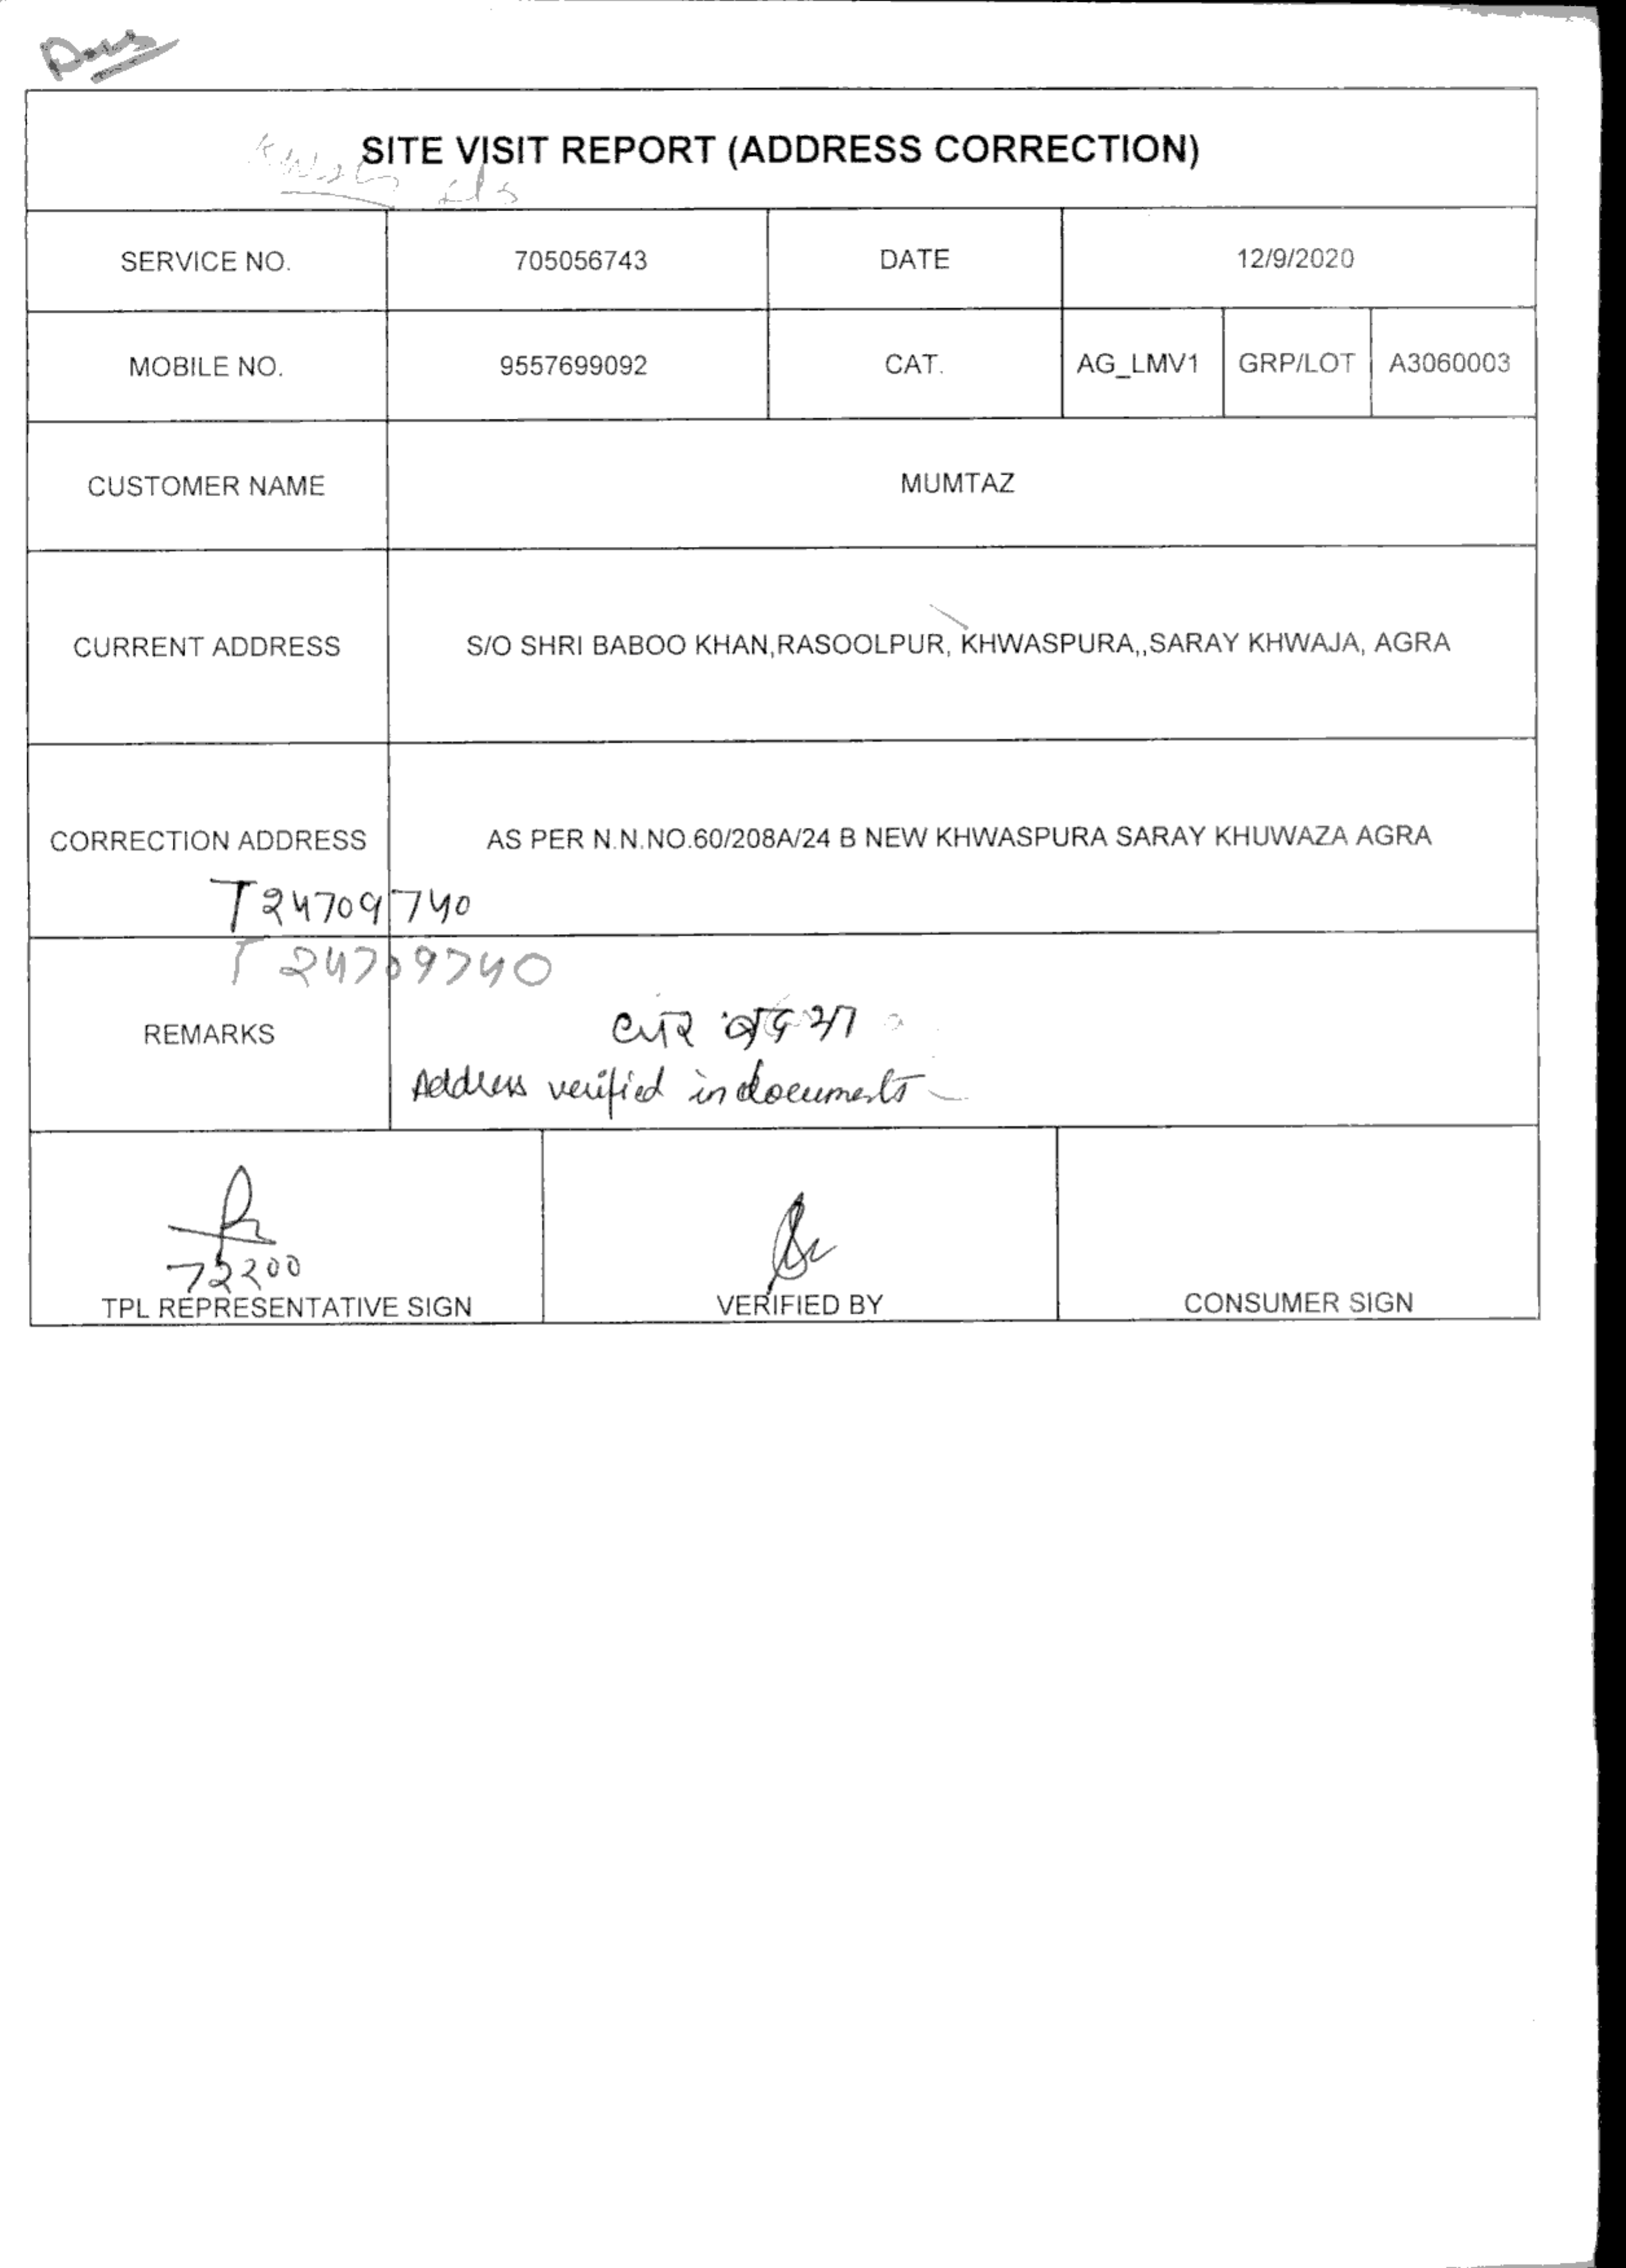 SITE VISIT REPORT (ADDRESS CORRECTION)
SERVICE NO. 705056743 DATE 12/9/2020
MOBILE NO. 9557699092 CAT. AG_LMV1 GRP/LOT A3060003
CUSTOMER NAME MUMTAZ
CURRENT ADDRESS S/O SHRI BABOO KHAN,RASOOLPUR, KHWASPURA,,SARAY KHWAJA, AGRA
CORRECTION ADDRESS AS PER N.N.NO.60/208A/24 B NEW KHWASPURA SARAY KHUWAZA AGRA
T24709740
T24709740
REMARKS
Address verified in documents
72200
TPL REPRESENTATIVE SIGN VERIFIED BY CONSUMER SIGN